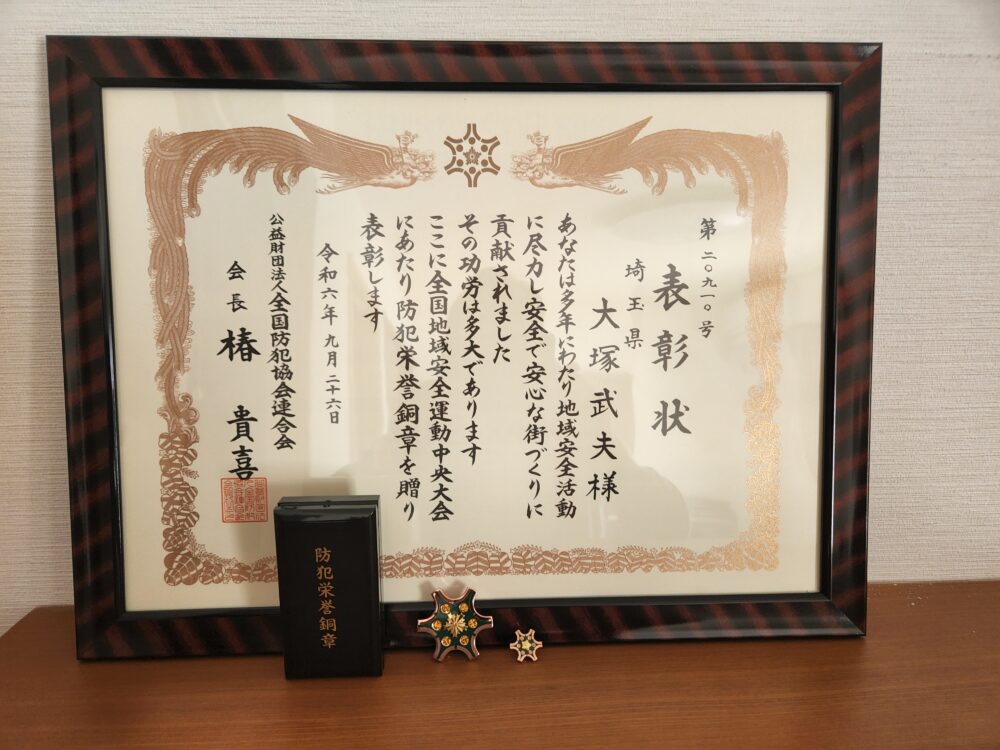 第二〇九一〇号
表彰状
埼玉県
大塚武夫様
あなたは多年にわたり地域安全活動
に尽力し安全で安心な街づくりに
貢献されました
その功労は多大であります
ここに全国地域安全運動中央大会
にあたり防犯栄誉銅章を贈り
表彰します
令和六年九月二十六日
公益財団法人全国防犯協会連合会
会長 椿 貴喜
防犯栄誉銅章